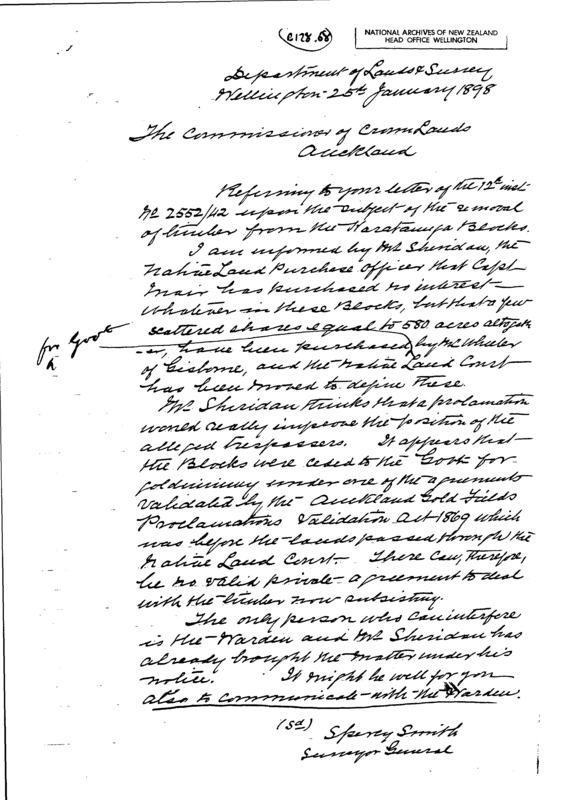 C128.68
NATIONAL ARCHIVES OF NEW ZEALAND
HEAD OFFICE WELLINGTON
Department of Lands & Survey
Wellington 25th January 1898
The Commissioner of Crown Lands
Auckland
Referring to your letter of the 12th inst
No 2552/42 upon the subject of the removal
of timber from the Blocks.
I am informed by Mr Sheridan, the
Native Land Purchase Officer that Capt
Mair has purchased no interest
whatever in these Blocks, but that a few
scattered shares equal to 580 acres altogeth
for Govt
-er, have been purchased by Mr Wheeler
of Gisborne, and the Native Land Court
has been moved to define these.
Mr Sheridan thinks that a proclamation
would really improve the position of the
alleged trespassers. It appears that
the Blocks were ceded to the Govt for
goldmining under one of the agreements
validated by the Auckland Gold Fields
Proclamations Validation Act 1869 which
was before the lands passed through the
Native Land Court. There can, therefore,
be no valid private agreement to deal
with the timber now subsisting.
The only person who can interfere
is the Warden and Mr Sheridan has
already brought the matter under his
notice. It might be well for you
also to communicate with the Warden.
(sd) Smith
Surveyor General